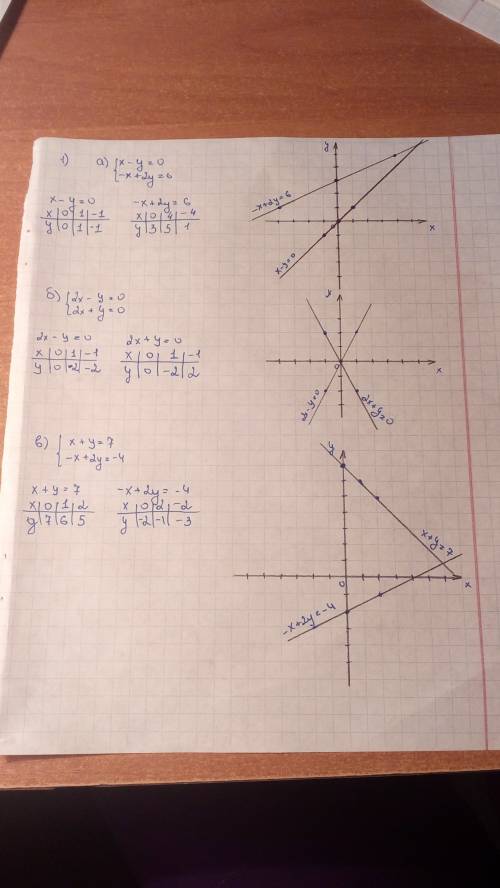 1) а) { x - y = 0
{ -x + 2y = 6
x - y = 0
x | 0 | 1 | -1
y | 0 | 1 | -1
-x + 2y = 6
x | 0 | 4 | -4
y | 3 | 5 | 1
y
-x+2y=6
x-y=0
0
x
б) { 2x - y = 0
{ 2x + y = 0
2x - y = 0
x | 0 | 1 | -1
y | 0 | 2 | -2
2x + y = 0
x | 0 | 1 | -1
y | 0 | -2 | 2
y
0
x
2x-y=0
2x+y=0
в) { x + y = 7
{ -x + 2y = -4
x + y = 7
x | 0 | 1 | 2
y | 7 | 6 | 5
-x + 2y = -4
x | 0 | 2 | -2
y | -2 | -1 | -3
y
x+y=7
0
x
-x+2y=-4